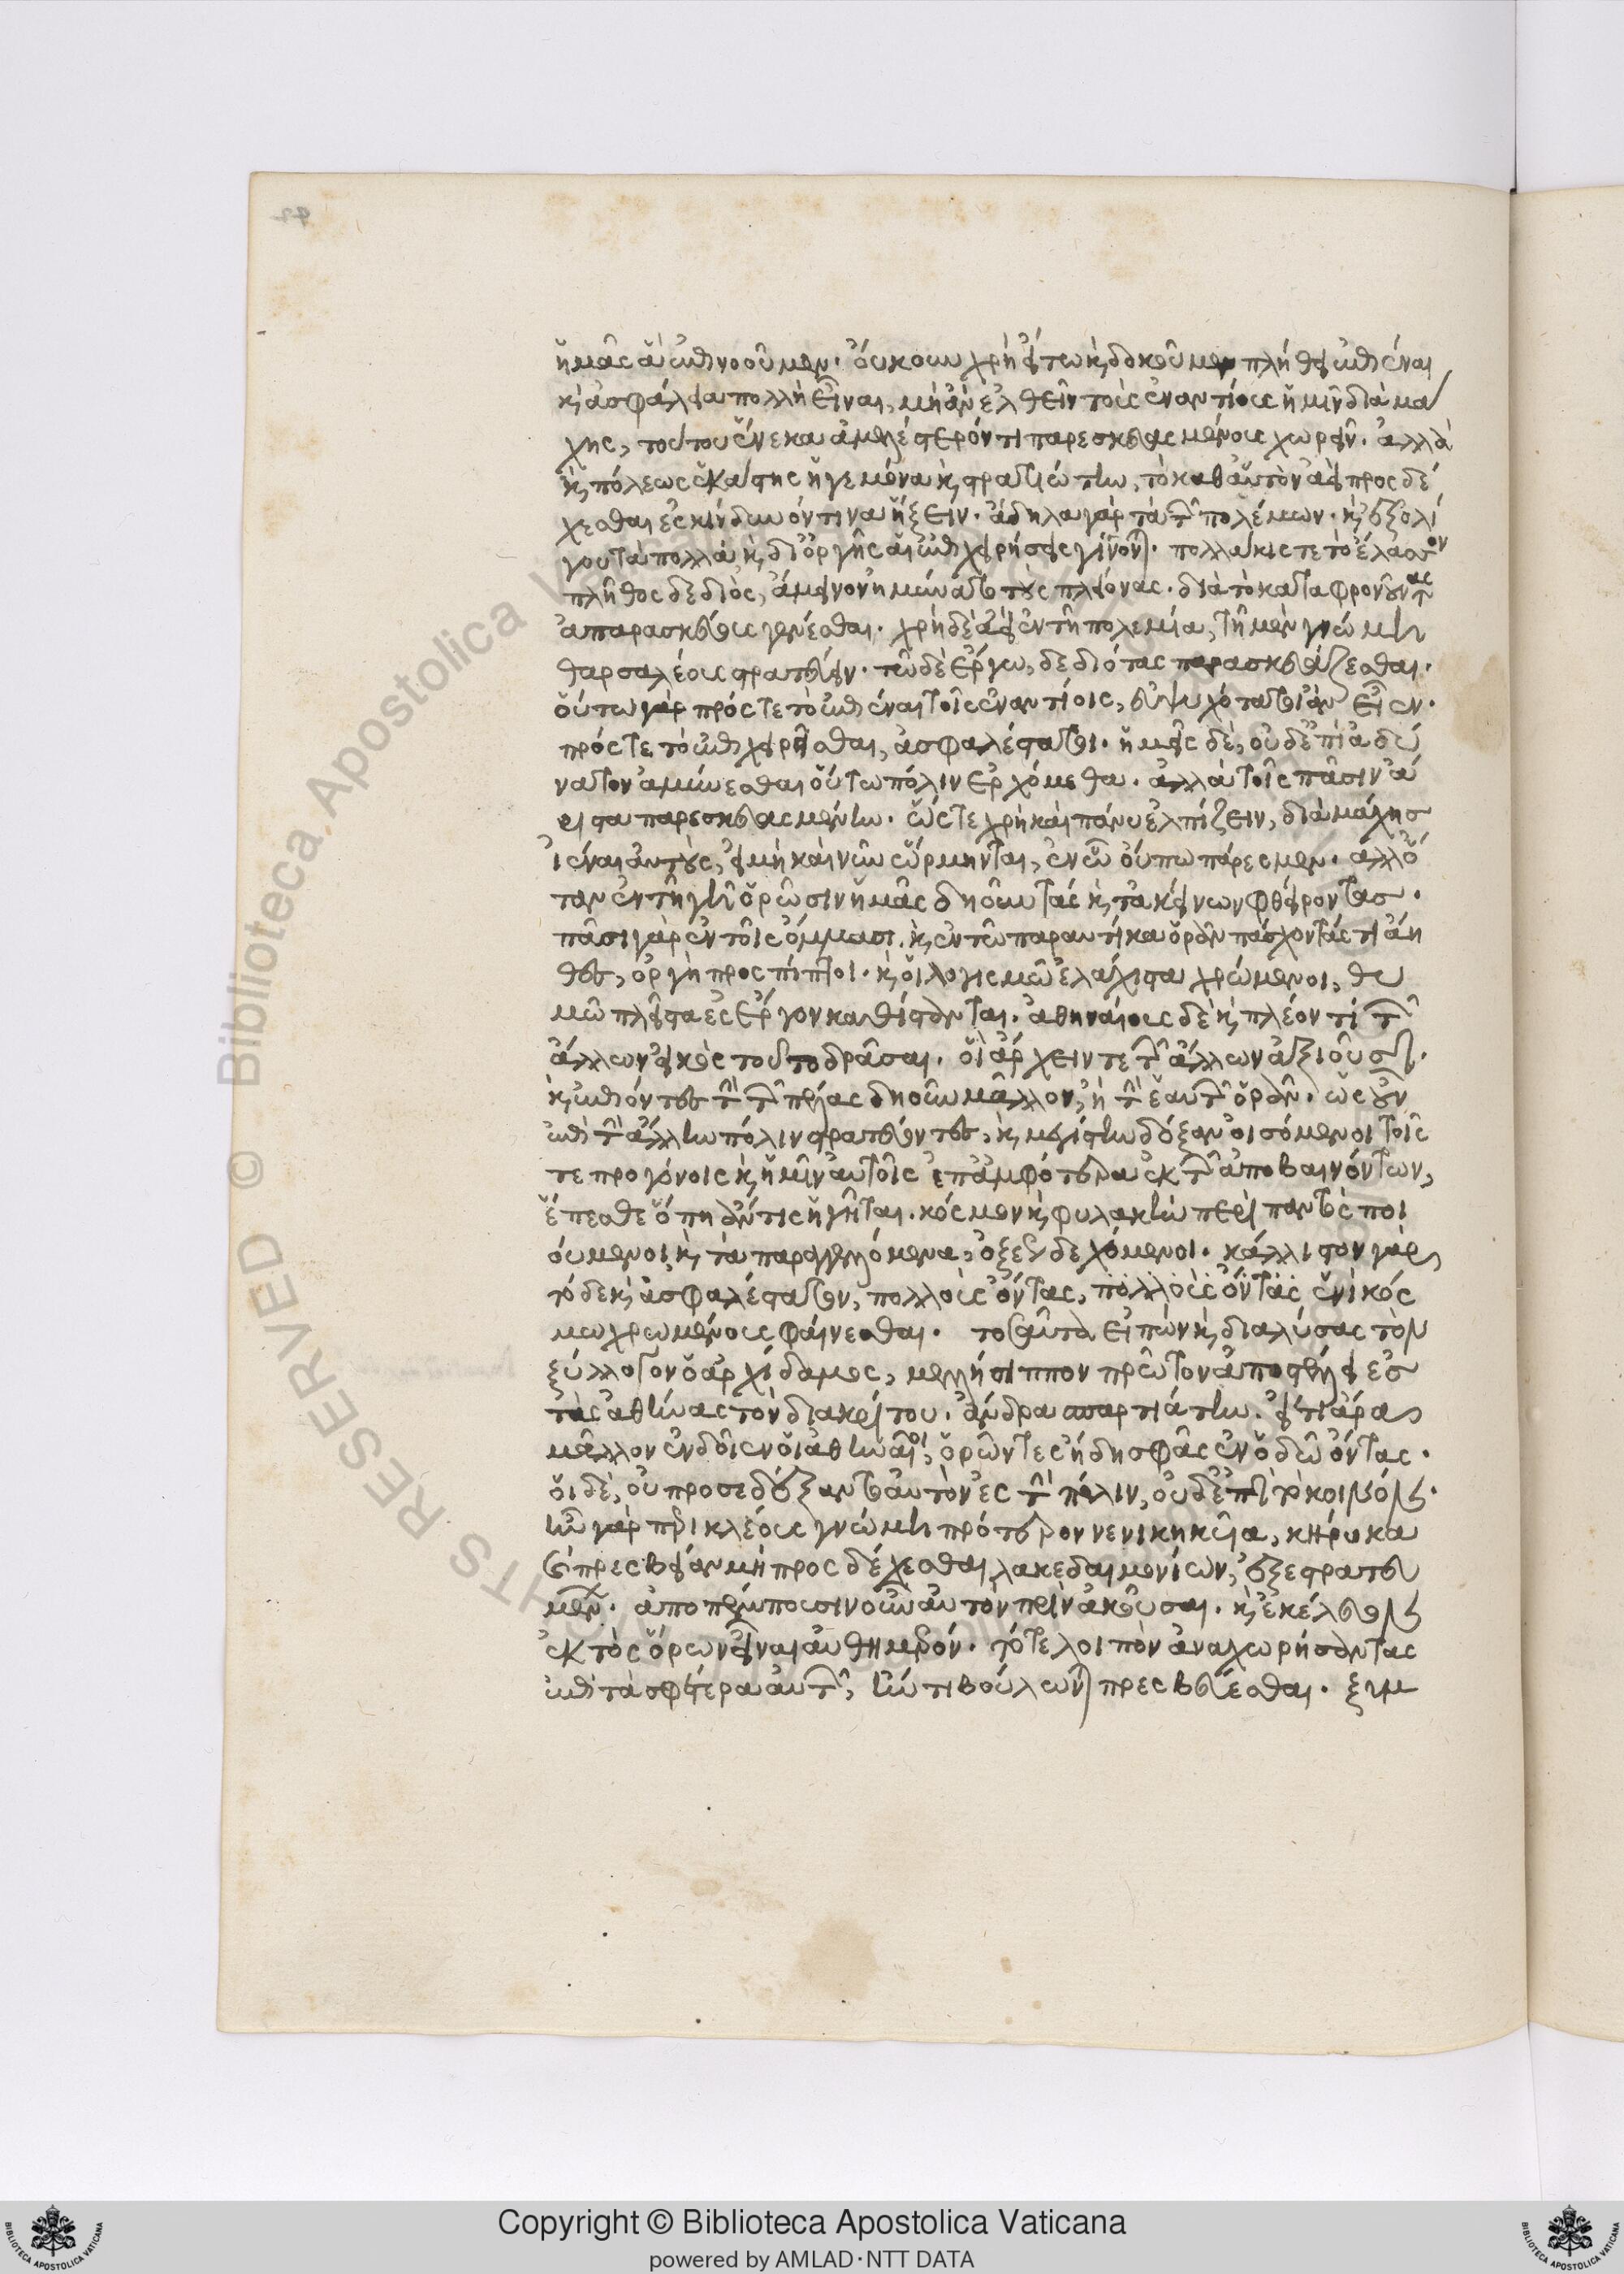 ἡμᾶς ἃ ἐπινοοῦμεν. οὔκουν χρὴ εἴ τῳ καὶ δοκοῦμεν πλήθει ἐπιέναι
καὶ ἀσφάλεια πολλὴ εἶναι, μὴ ἂν ἐλθεῖν τοὺς ἐναντίους ἡμῖν διὰ μά
χης, τούτου ἕνεκα ἀμελέστερόν τι παρεσκευασμένους χωρεῖν. ἀλλὰ
καὶ πόλεως ἑκάστης ἡγεμόνα καὶ στρατιώτην, τὸ καθ' αὑτὸν ἀεὶ προσδέ
χεσθαι ἐς κίνδυνόν τινα ἥξειν. ἄδηλα γὰρ τὰ τῶν πολέμων. καὶ ἐξ ὀλί
γου τὰ πολλὰ καὶ δι' ὀργῆς αἱ ἐπιχειρήσεις γίνονται. πολλάκις τε τὸ ἔλασσον
πλῆθος δεδιὸς, ἄμεινον ἠμύνατο τοὺς πλέονας. διὰ τὸ καταφρονοῦντας
ἀπαρασκεύους γενέσθαι. χρὴ δὲ ἀεὶ ἐν τῇ πολεμίᾳ, τῇ μὲν γνώμῃ
θαρσαλέους στρατεύειν. τῷ δὲ ἔργῳ, δεδιότας παρασκευάζεσθαι.
οὕτω γὰρ πρός τε τὸ ἐπιέναι τοῖς ἐναντίοις, εὐψυχότατοι ἂν εἶεν.
πρός τε τὸ ἐπιχειρῆσθαι, ἀσφαλέστατοι. ἡμεῖς δὲ, οὐδ' ἐπὶ ἀδύ
νατον ἀμύνεσθαι οὕτω πόλιν ἐρχόμεθα. ἀλλὰ τοῖς πᾶσιν ἄ
ριστα παρεσκευασμένην. ὥστε χρὴ καὶ πάνυ ἐλπίζειν, διὰ μάχης
ἰέναι αὐτοὺς, εἰ μὴ καὶ νῦν ὥρμηνται, ἐν ᾧ οὔπω πάρεσμεν. ἀλλ' ὅ
ταν ἐν τῇ γῇ ὁρῶσιν ἡμᾶς δῃοῦντάς καὶ τἀκείνων φθείροντας.
πᾶσι γὰρ ἐν τοῖς ὄμμασι. καὶ ἐν τῷ παραυτίκα ὁρᾶν πάσχοντάς τι ἀή
θες, ὀργὴ προσπίπτει. καὶ οἱ λογισμῷ ἐλάχιστα χρώμενοι, θυ
μῷ πλεῖστα ἐς ἔργον καθίστανται. ἀθηναίους δὲ καὶ πλέον τι τῶν
ἄλλων εἰκὸς τοῦτο δρᾶσαι. οἳ ἄρχειν τε τῶν ἄλλων ἀξιοῦσι.
καὶ ἐπιόντες τὴν τῶν πέλας δῃοῦν μᾶλλον, ἢ τὴν ἑαυτῶν ὁρᾶν. ὡς οὖν
ἐπὶ τὴν ἄλλην πόλιν στρατεύοντες, καὶ μεγίστην δόξαν οἰσόμενοι τοῖς
τε προγόνοις καὶ ἡμῖν αὐτοῖς ἐπ' ἀμφότερα ἐκ τῶν ἀποβαινόντων,
ἕπεσθε ὅπῃ ἄν τις ἡγῆται. κόσμον καὶ φυλακὴν περὶ παντὸς ποι
ούμενοι, καὶ τὰ παραγγελόμενα, ὀξέως δεχόμενοι. κάλλιστον γὰρ
τόδε καὶ ἀσφαλέστατον, πολλοὺς ὄντας, πολλοὺς ὄντας ἑνὶ κόσ
μῳ χρωμένους φαίνεσθαι. τοσαῦτα εἰπὼν καὶ διαλύσας τὸν
ξύλλογον ὁ ἀρχίδαμος, μελήσιππον πρῶτον ἀποστέλλει ἐς
τὰς ἀθήνας τὸν διακρίτου. ἄνδρα σπαρτιάτην. εἴ τι ἄρα
μᾶλλον ἐνδοῖεν οἱ ἀθηναῖοι, ὁρῶντες ἤδη σφᾶς ἐν ὁδῷ ὄντας.
οἱ δὲ, οὐ προσεδέξαντο αὐτὸν ἐς τὴν πόλιν, οὐδ' ἐπὶ τὸ κοινόν.
ἦν γὰρ περικλέους γνώμη πρότερον νενικηκυῖα, κήρυκα
καὶ πρεσβείαν μὴ προσδέχεσθαι λακεδαιμονίων, ἐξεστρατευ
μένων. ἀποπέμπουσιν οὖν αὐτὸν πρὶν ἀκοῦσαι. καὶ ἐκέλευον
ἐκτὸς ὅρων εἶναι αὐθημερόν. τό τε λοιπὸν ἀναχωρήσαντας
ἐπὶ τὰ σφέτερα αὐτῶν, ἤν τι βούλωνται πρεσβεύεσθαι. ξυμ
Copyright © Biblioteca Apostolica Vaticana
powered by AMLAD·NTT DATA